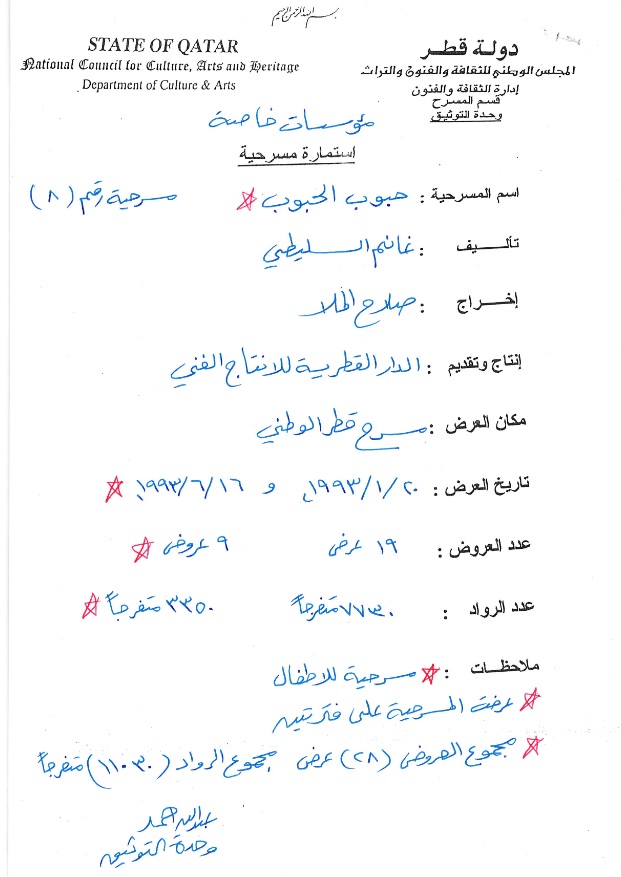 بسم الله الرحمن الرحيم
STATE OF QATAR
National Council for Culture, Arts and Heritage
Department of Culture & Arts
دولة قطر
المجلس الوطني للثقافة والفنون والتراث
إدارة الثقافة والفنون
قسم المسرح
وحدة التوثيق
مؤسسات خاصة
استمارة مسرحية
اسم المسرحية : حبوب الحبوب مسرحية رقم (٨)
تأليف : غانم السليطي
إخراج : صلاح الملا
إنتاج وتقديم : الدار القطرية للانتاج الفني
مكان العرض : مسرح قطر الوطني
تاريخ العرض : ١٩٩٣/١/٢٠ و ١٩٩٣/٦/١٦
عدد العروض : ١٩ عرض ٩ عروض
عدد الرواد : ٧٧٣٠ متفرجاً ٣٣٥٠ متفرجاً
ملاحظات : مسرحية للاطفال
عرضة المسرحية على فترتين
مجموع العروض (٢٨) عرض مجموع الرواد (١١٠٣٠) متفرجاً
عبدالله احمد
وحدة التوثيق